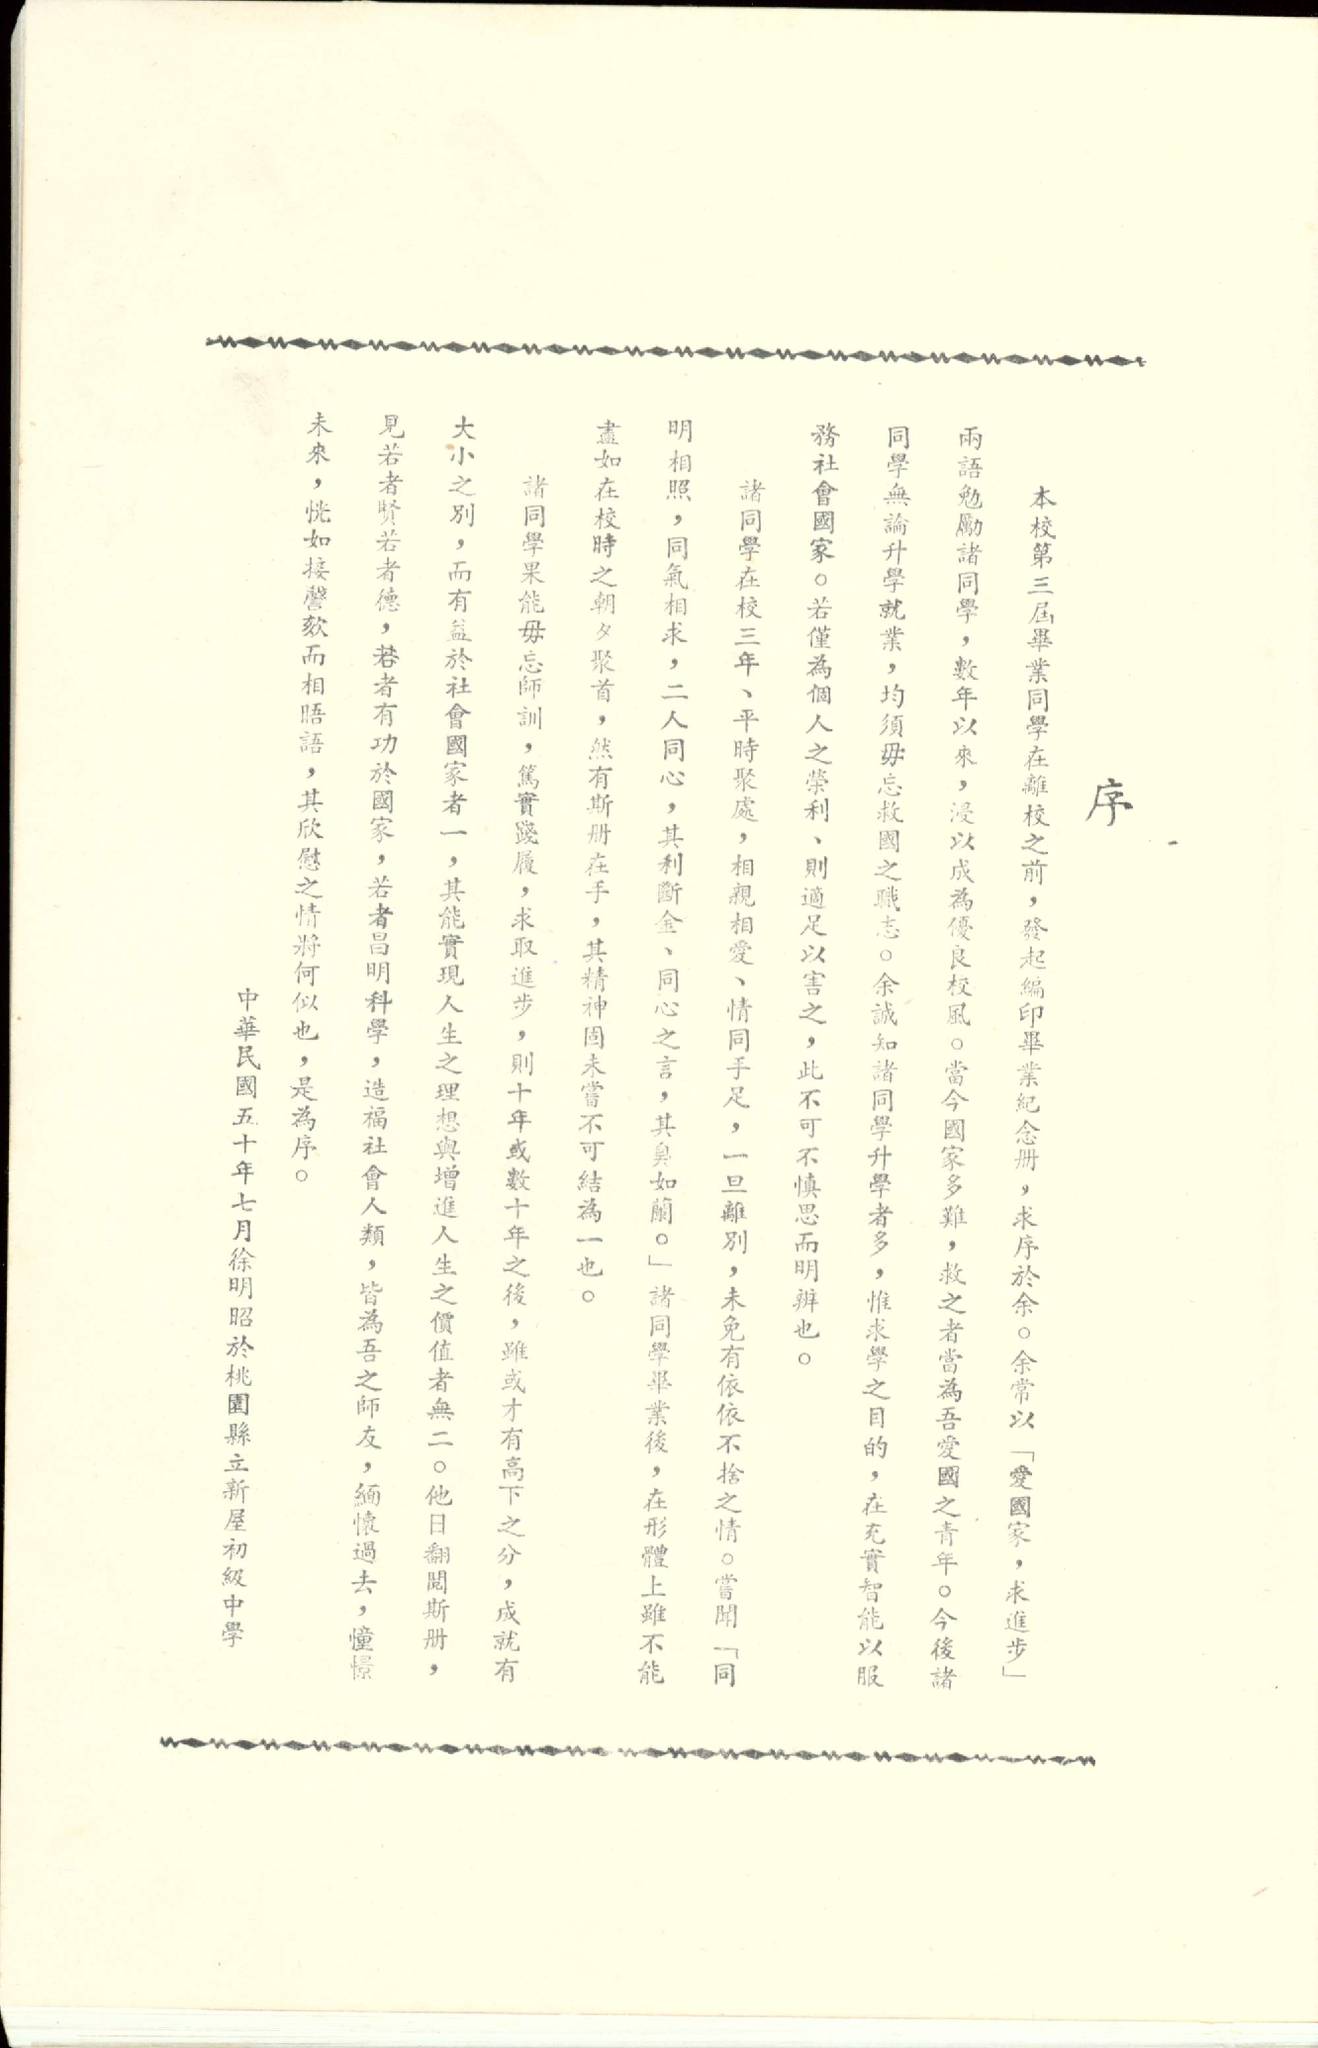 序
本校第三屆畢業同學在離校之前，發起編印畢業紀念册，求序於余。余常以「愛國家，求進步」
兩語勉勵諸同學，數年以來，浸以成為優良校風。當今國家多難，救之者當為吾愛國之青年。今後諸
同學無論升學就業，均須毋忘救國之職志。余誠知諸同學升學者多，惟求學之目的，在充實智能以服
務社會國家。若僅為個人之榮利、則適足以害之，此不可不慎思而明辨也。
諸同學在校三年、平時聚處，相親相愛、情同手足，一旦離別，未免有依依不捨之情。嘗聞「同
明相照，同氣相求，二人同心，其利斷金、同心之言，其臭如蘭。」諸同學畢業後，在形體上雖不能
盡如在校時之朝夕聚首，然有斯册在手，其精神固未嘗不可結為一也。
諸同學果能毋忘師訓，篤實踐履，求取進步，則十年或數十年之後，雖或才有高下之分，成就有
大小之別，而有益於社會國家者一，其能實現人生之理想與增進人生之價值者無二。他日翻閱斯册，
見若者賢若者德，若者有功於國家，若者昌明科學，造福社會人類，皆為吾之師友，緬懷過去，憧憬
未來，恍如接謦欬而相晤語，其欣慰之情將何似也，是為序。
中華民國五十年七月徐明昭於桃園縣立新屋初級中學